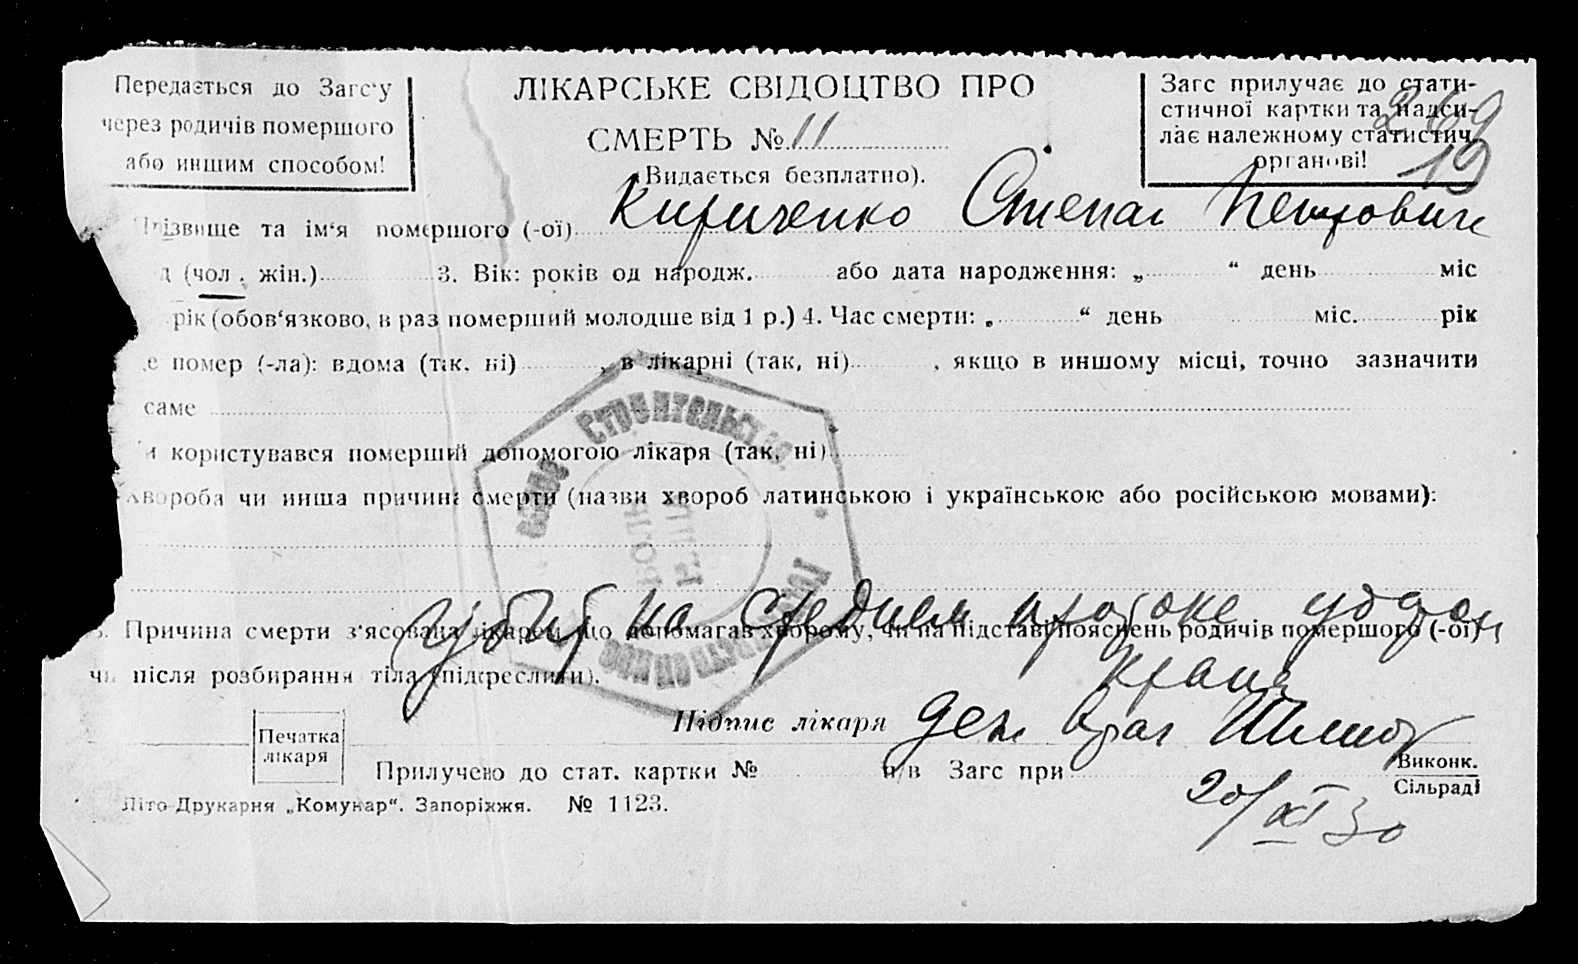 Передається до Загс'у
через родичів помершого
або иншим способом!
ЛІКАРСЬКЕ СВІДОЦТВО ПРО
СМЕРТЬ № 11
Видається безплатно).
Загс прилучає до стати-
стичної картки та надси-
лає належному статистич.
органові!
269
19
Прізвище та ім'я помершого (-ої) Кириченко Степан Петрович
д (чол., жін.) 3. Вік: років од народж. або дата народження: „ “ день міс
рік (обов'язково, в раз померший молодше від 1 р.) 4. Час смерти: „ “ день міс. рік
е помер (-ла): вдома (так, ні) , в лікарні (так, ні) , якщо в иншому місці, точно зазначити
саме
и користувався померший допомогою лікаря (так, ні)
хвороба чи инша причина смерти (назви хвороб латинською і українською або російською мовами):
Убит на среднем протоке ударом
крана
Причина смерти з'ясована лікарем що допомагав хворому, чи на підставі пояснень родичів помершого (-ої)
чи після розбирання тіла (підкреслити).
Печатка
лікаря
Підпис лікаря Деж врач
Прилучено до стат. картки № н/в Загс при Виконк.
Сільраді
20/XI 30
Літо-Друкарня „Комунар“. Запоріжжя. № 1123.
Строительство
Государственное